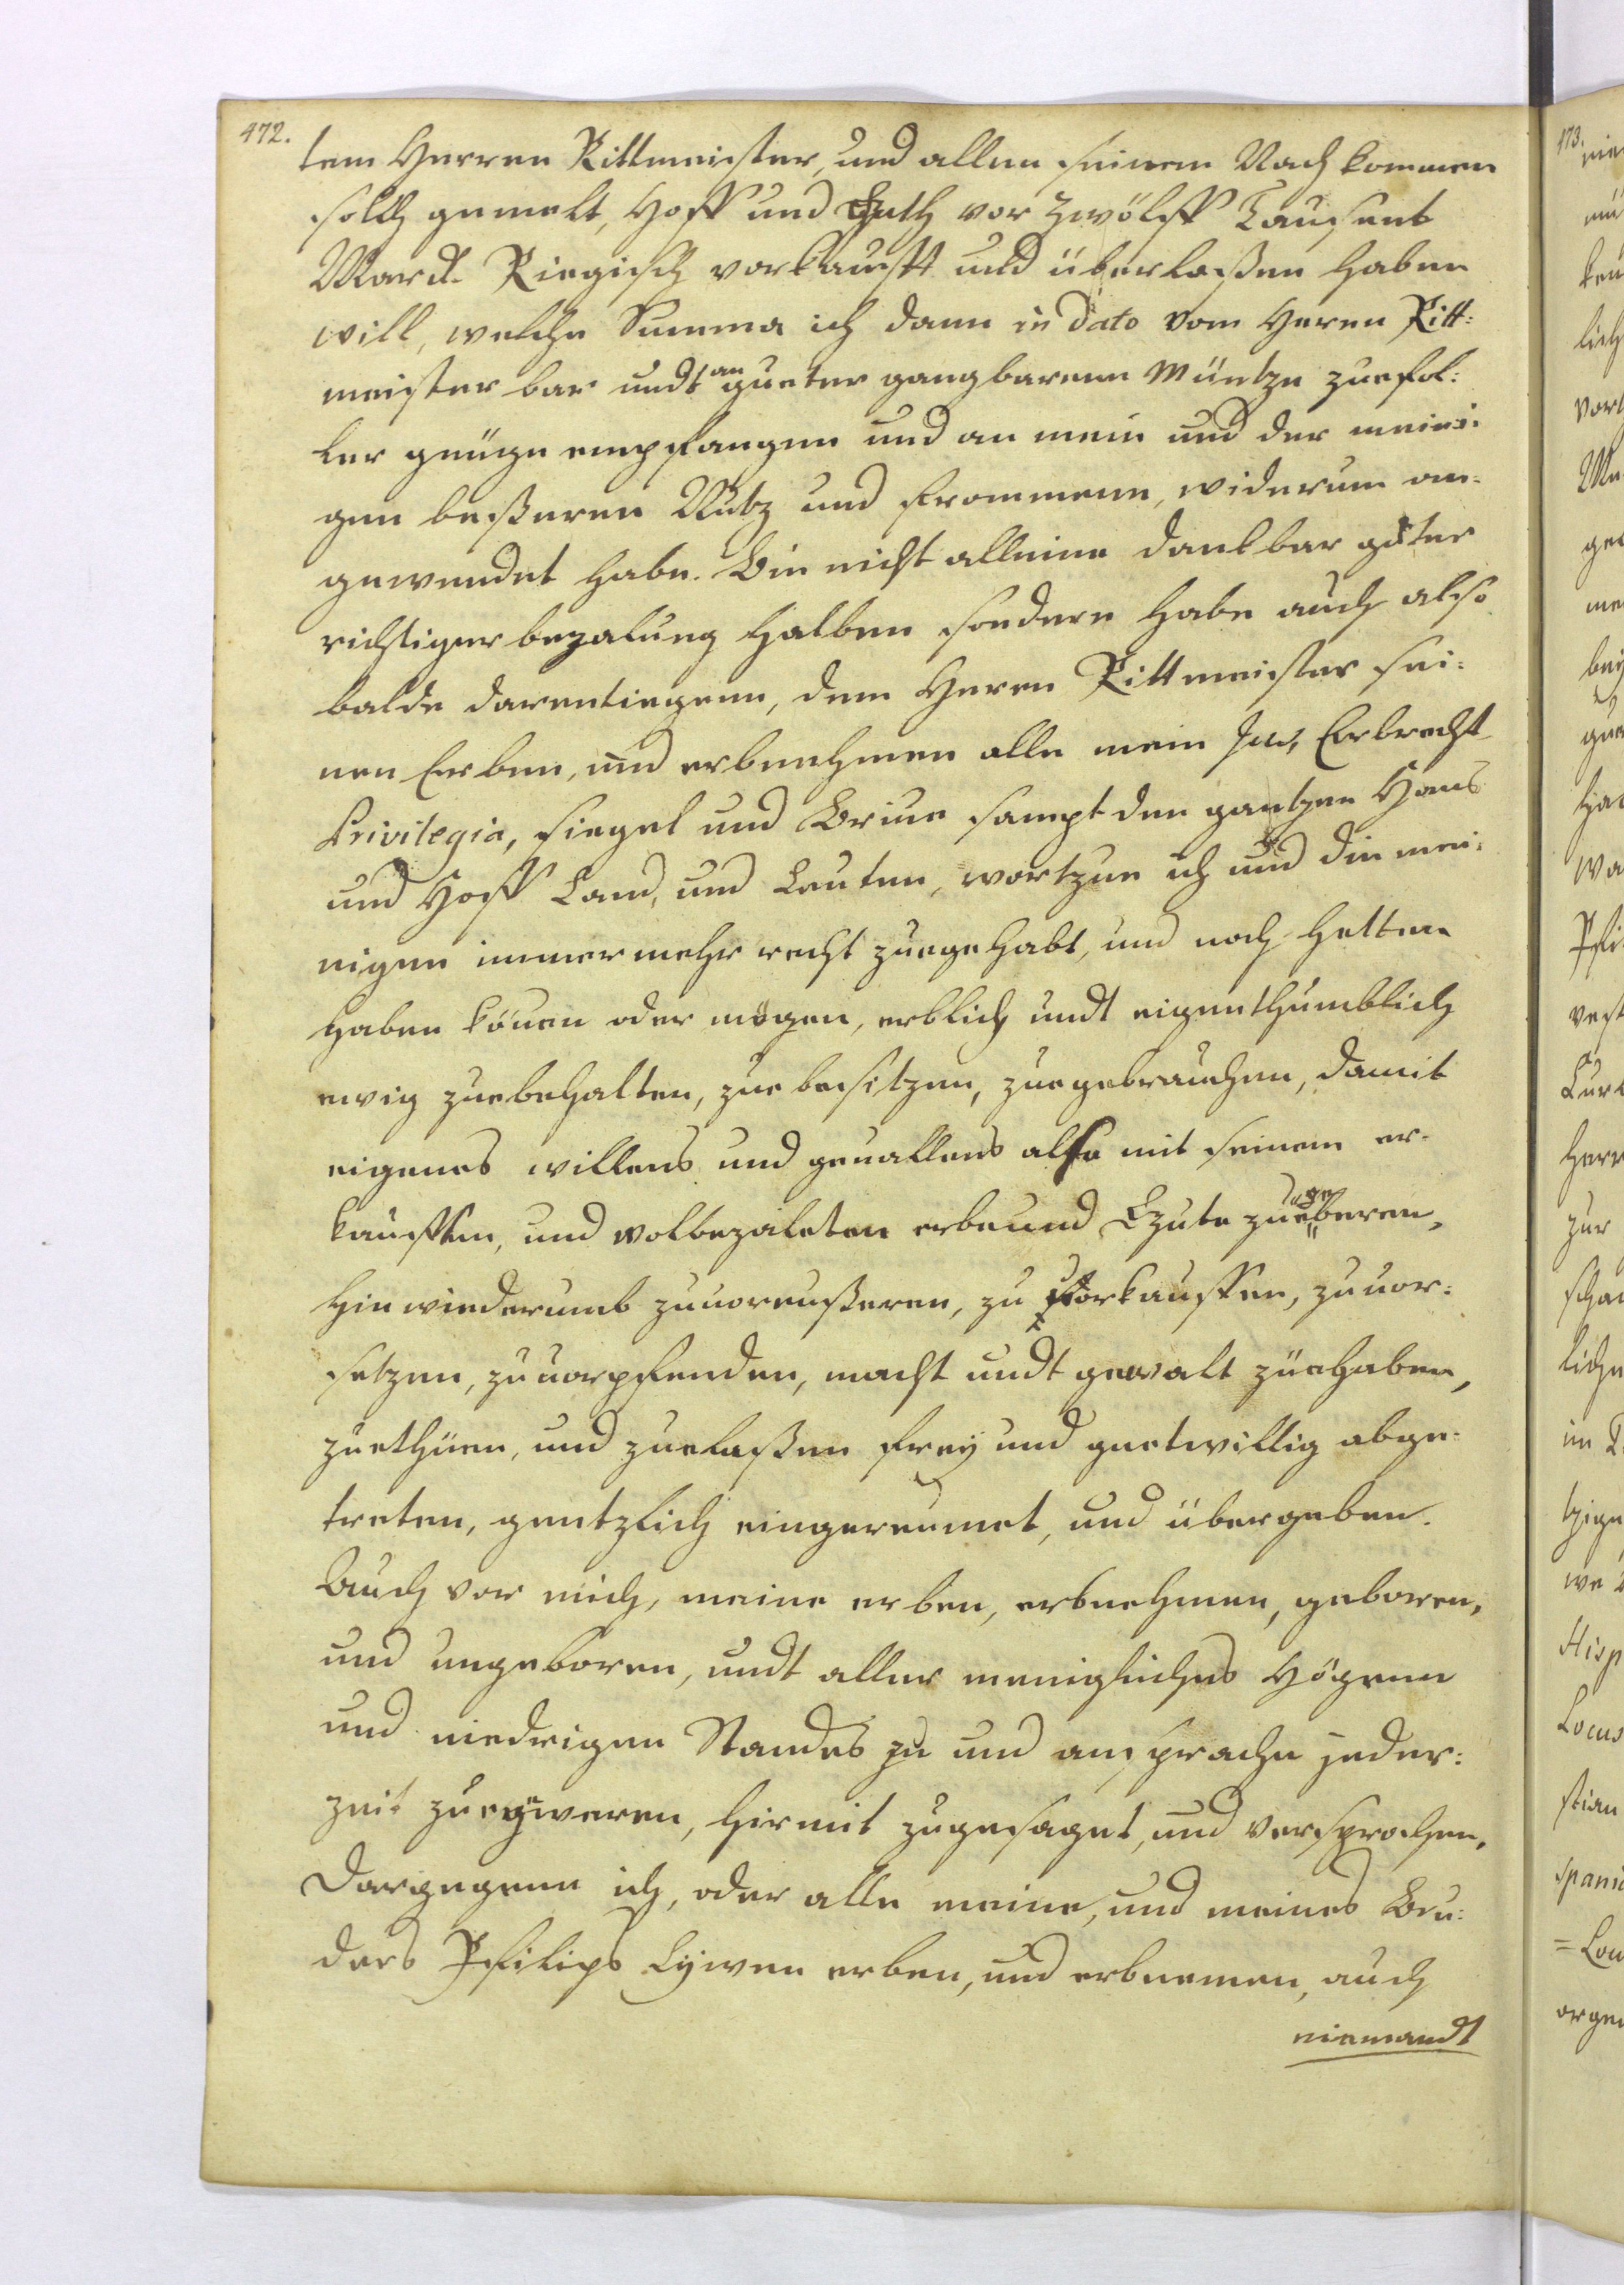 472.
tem Herren Rittmeister, und allen seinem Nachkommen
solch gemelt, Hoff und Guth vor Zwölff Tausent
Marck Riegisch vorkaufft und überlaßen haben
will, welche Summa ich dann in dato vom Heren Ritt:
meister bar undt an gueter gangbarenn Müntze zuefol:
ler genüge empfangen und an mein und der meini:
gen beßeren Nutz und frommenn, widerum an:
gewendet habe. Bin nicht alleine dankbar guter
richtiger bezalung halben sondern habe auch also
balde darentiegenn, dem Heren Rittmeister sei:
nen Erben, und erbnehmen alle mein Jus, Erbrecht
Privilegia, siegel und Brieue sampt den gantzen Haus
und Hoff Land, und Leuten, wortzue ich und die mei:
nigen immermehr recht zuegehabt, und noch hetten
haben könen oder mögen, erblich undt eigenthumblich
ewig zuebehalten, zue besitzen, zuegebrauchen, damit
eigenes willens und geuallens also mit seinem er:
kaufften, und wolbezaleten erbeund
hinwiederumb zuuoreußeren, zu vorkauffen, zuuor:
setzen, zuuorpfenden, macht undt gewalt züehaben,
zuethuen, und zuelaßen frey und guetwillig abge:
treten, gentzlich eingereumet, und übergeben.
Auch vor mich, meine erben, erbnehmen, geboren,
und ungeboren, undt aller meniglichs Högenn
und niedrigen Standes zu und ansprache jeder:
zeit zu hirmit zugesaget, und versprochen,
Dargegenn ich, oder alle meine, und meines Bru:
ders Philips Lywen erben, und erbnemen, auch
niemandt
173.